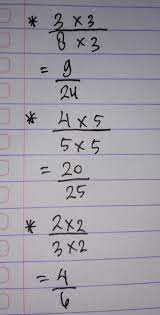 * 3 × 3
8 × 3
= 9
24
* 4 × 5
5 × 5
= 20
25
* 2 × 2
3 × 2
= 4
6